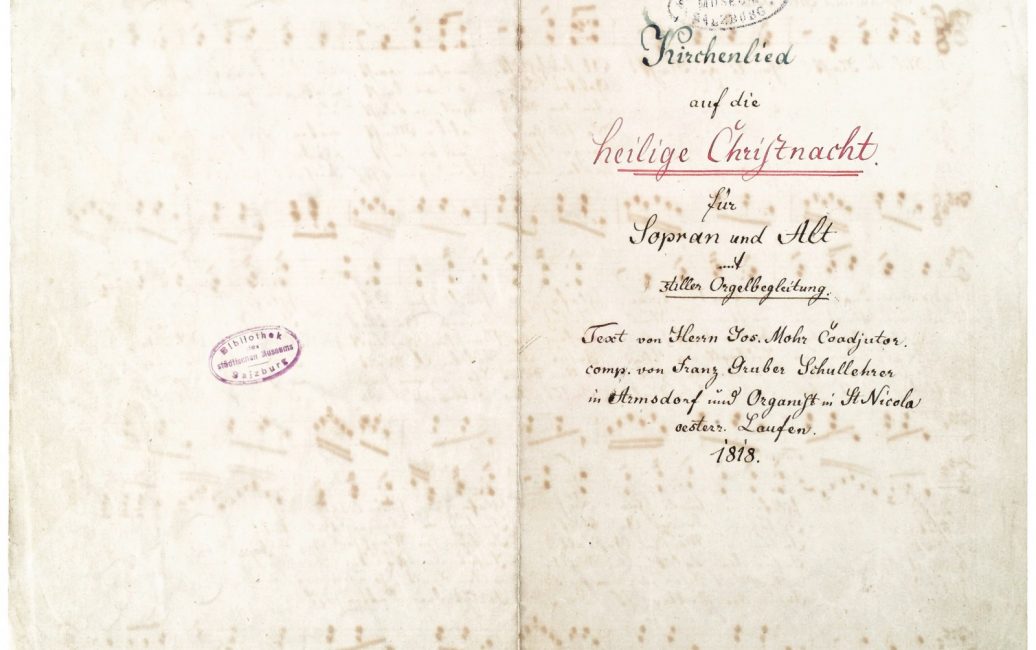 Bibliothek
des
städtischen Museums
Salzburg
MUSEUM
SALZBURG
Kirchenlied
auf die
heilige Chriſtnacht.
für
Sopran und Alt
stiller Orgelbegleitung.
Text von Herrn Jos. Mohr Coadjutor.
comp. von Franz Gruber Schullehrer
in Armsdorf und Organiſt in St Nicola
oesterr. Laufen.
1818.